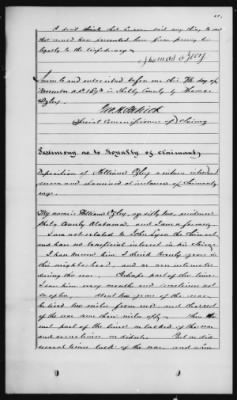 I don't think he ever said any thing to me
that would have prevented him from proving his
loyalty to the Confederacy
Thomas Ozley
Sworn to and subscribed before me this 7th day of
November A.D. 187 in Shelby County by Thomas
Ozley
Special Commissioner of Claims
Testimony as to Loyalty of Claimant
Deposition of William Ozley a witness introduced
sworn and examined at instance of Claimant
says
My name is William Ozley, age fifty two, residence
Shelby County Alabama and I am a farmer
I am not related to John the claimant
and have no beneficial interest in his claim
I have known him I think twenty years in
this neighborhood and we were intimate
during the war part of the time
I saw him every month and sometimes not
so often About two years of the war
he lived two miles from me and the rest
of the war nine miles off
part of the time we talked of the war
and sometimes we didn't But we did
several times talk of the war and